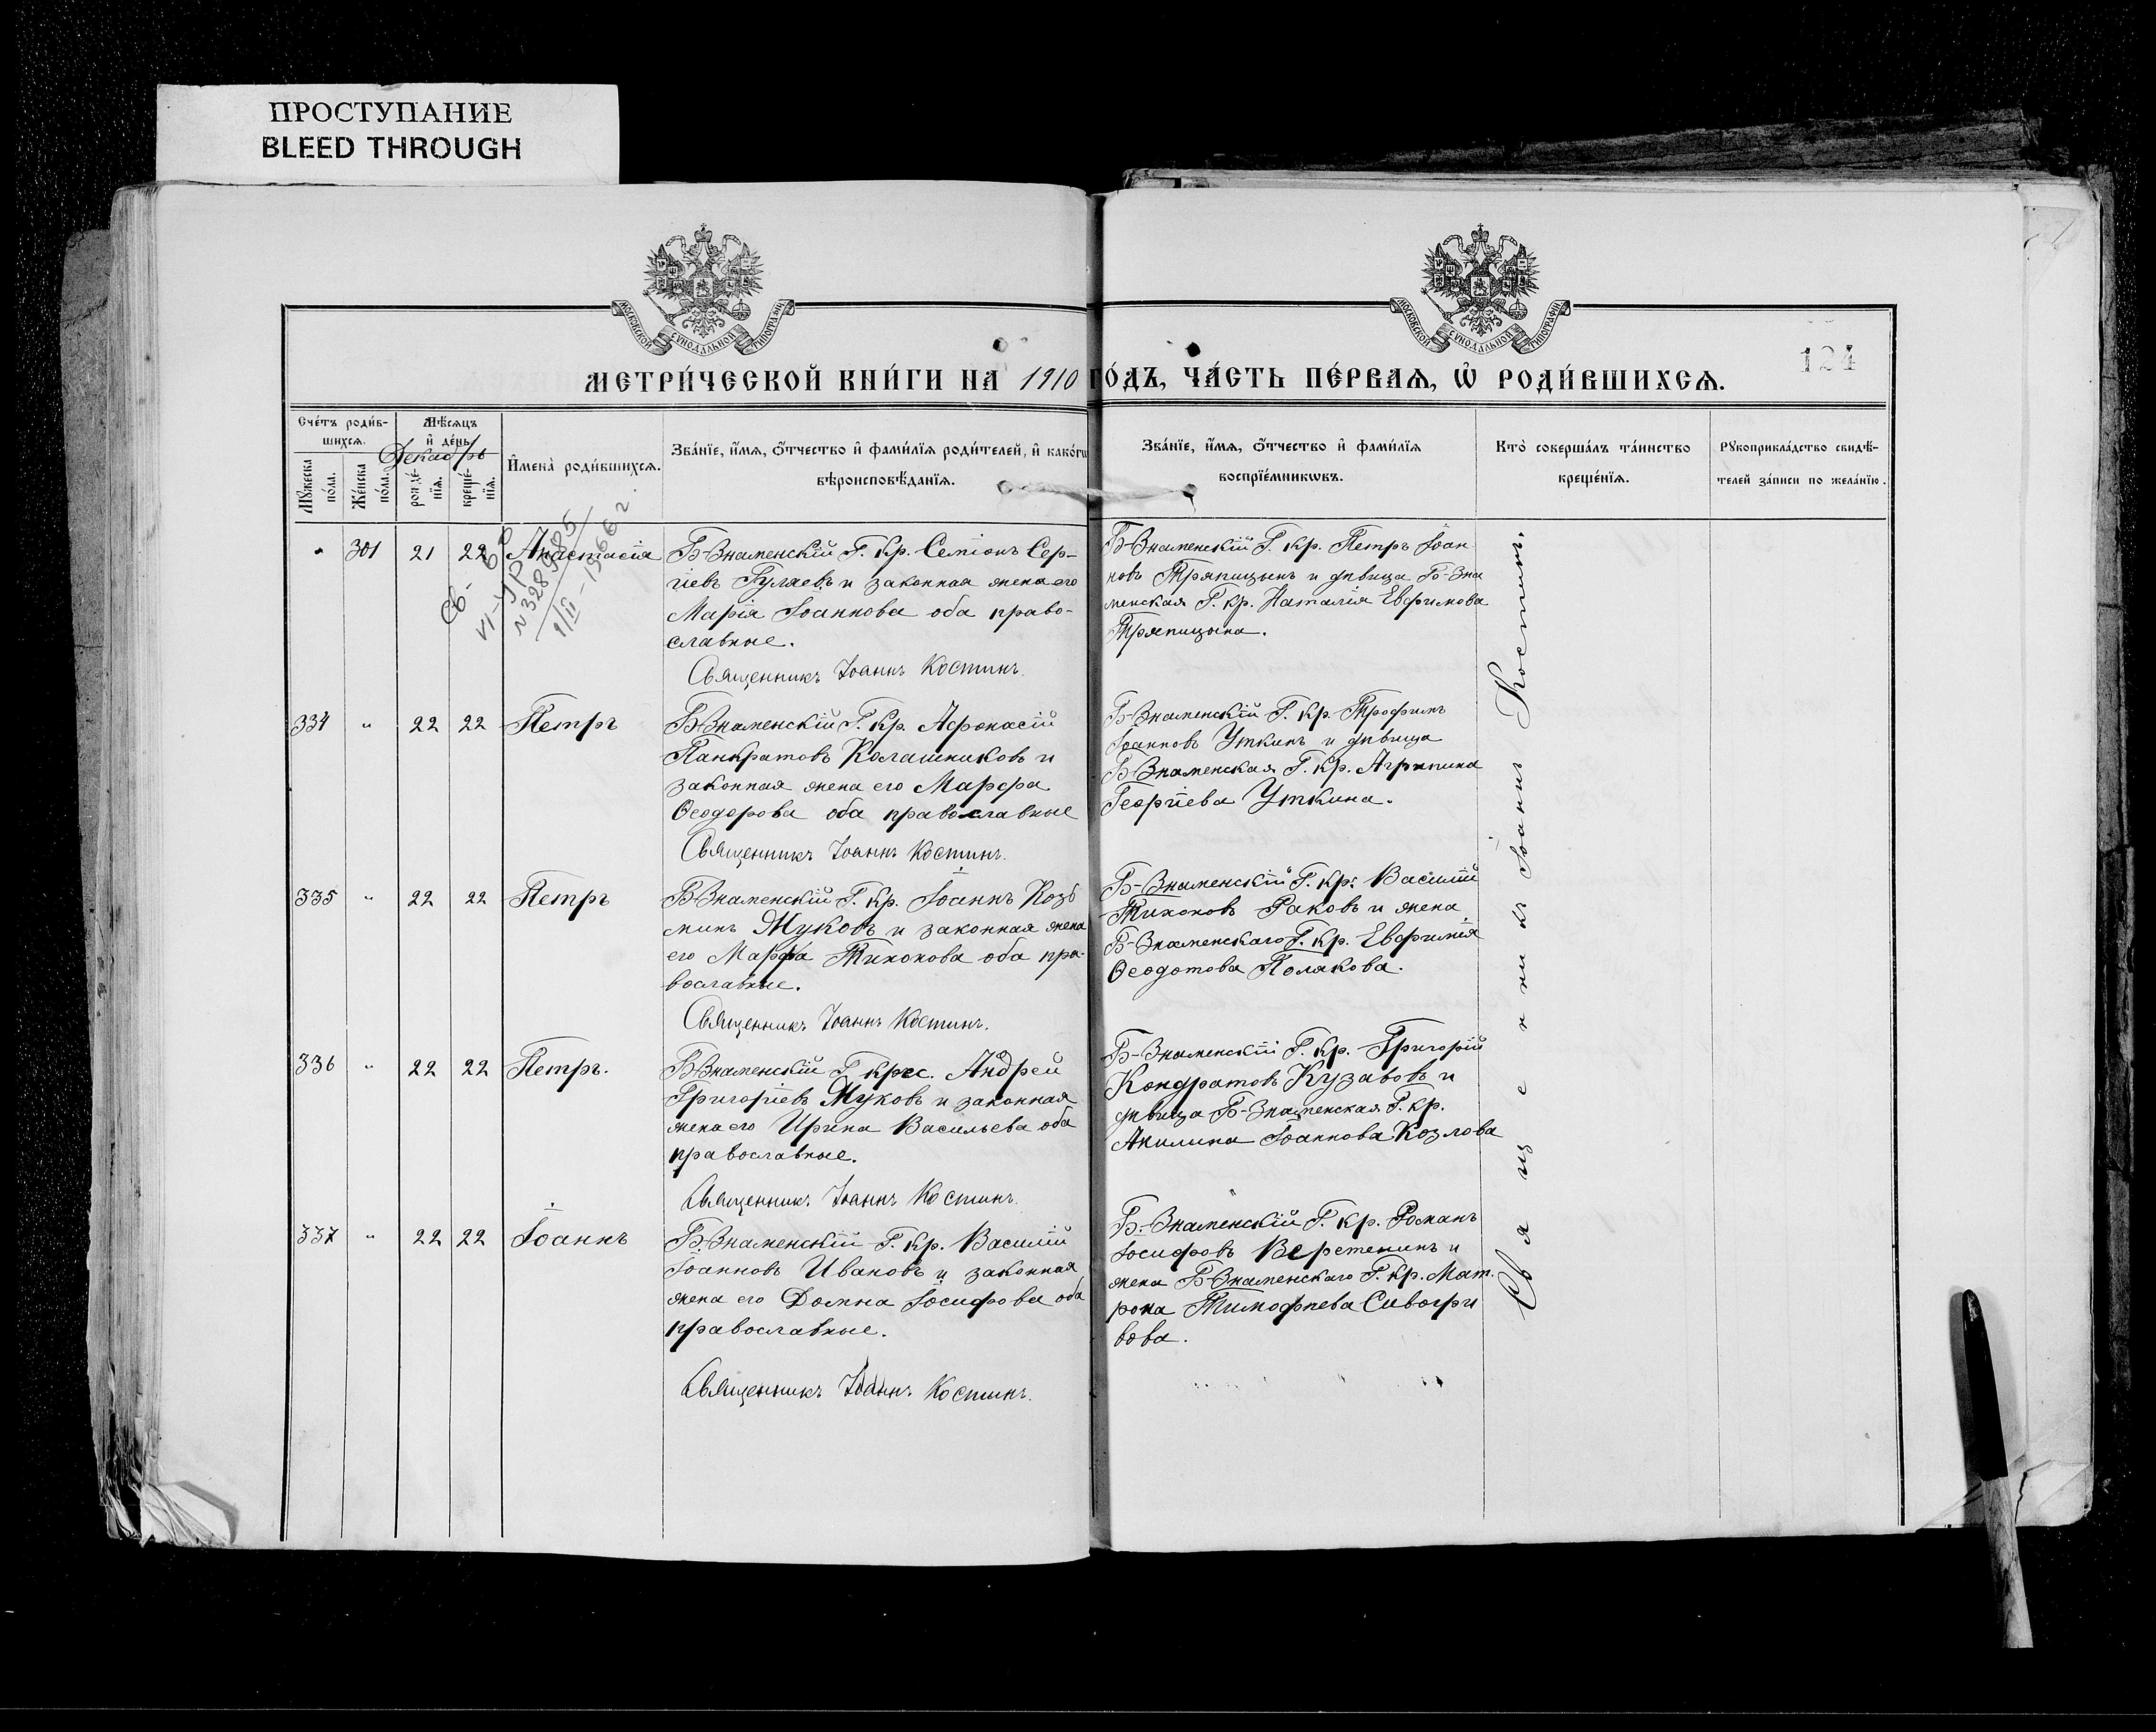 ПРОСТУПАНИЕ
BLEED THROUGH
МОСКОВСКОЙ СѴНОДАЛЬНОЙ ТИПОГРАФІИ
МОСКОВСКОЙ СѴНОДАЛЬНОЙ ТИПОГРАФІИ
124
МЕТРИ́ЧЕСКОЙ КНИ́ГИ НА 1910 ГО́ДЪ, ЧА́СТЬ ПЕ́РВАЯ, Ѡ҆ РОДИ́ВШИХСЯ.
Сче́тъ роди́в-
шихся.
Мѣ́сяцъ
и҆ де́нь
Декабрь
Мꙋ́жеска по́ла.
Же́нска по́ла.
рожде́-
нїя.
креще́-
нїя.
И҆мена̀ роди́вшихся.
Зва́нїе, и҆́мя, ѻ҆́тчество и҆ фами́лїя роди́телей, и҆ како́гѡ
вѣроисповѣ́данїя.
Зва́нїе, и҆́мя, ѻ҆́тчество и҆ фами́лїя
воспрїе́мникѡвъ.
Кто̀ соверша́лъ та́инство
креще́нїя.
Рꙋкоприкла́дство свидѣ́-
телей за́писи по жела́нїю.
" 301 21 22 Анастасія
Б-Знаменскій Г. Кр. Семіонъ Сер-
гіевъ Гуляевъ и законная жена его
Марія Іоаннова оба право-
славные.
Священникъ Іоаннъ Костинъ.
Б-Знаменскій Г. Кр. Петръ Іоан
новъ Тряпицынъ и дѣвица Б-Зна
менская Г. кр. Наталія Евфимова
Тряпицына.
Св-во
VI-УР
N 328985
1/II-1966 г.
334 " 22 22 Петръ
Б-Знаменскій Г. Кр. Афонасій
Панкратовъ Колашниковъ и
законная жена его Марфа
Ѳеодорова оба православные
Священникъ Іоаннъ Костинъ.
Б-Знаменскій Г. Кр. Трофимъ
Іоанновъ Уткинъ и дѣвица
Б-Знаменская Г. Кр. Агрипина
Георгіева Уткина.
335 " 22 22 Петръ
Б-Знаменскій Г. Кр. Іоаннъ Козь
минъ Жуковъ и законная жена
его Марфа Тихонова оба пра-
вославные.
Священникъ Іоаннъ Костинъ.
Б-Знаменскій Г. Кр. Василій
Тихоновъ Раковъ и жена
Б-Знаменскаго Г. Кр. Евфимія
Ѳеодотова Полякова.
336 " 22 22 Петръ.
Б-Знаменскій Г крес. Андрей
Григоріевъ Жуковъ и законная
жена его Ирина Васильева оба
православные.
Священникъ Іоаннъ Костинъ.
Б-Знаменскій Г. Кр. Григорій
Кондратовъ Кузавовъ и
дѣвица Б-Знаменская Г. Кр.
Акилина Іоаннова Козлова
337 " 22 22 Іоаннъ
Б.Знаменскій Г. Кр. Василій
Іоанновъ Ивановъ и законная
жена его Домна Іосифова оба
православные.
Священникъ Іоаннъ Костинъ.
Б.-Знаменскій Г. Кр. Романъ
Іосифовъ Веретенинъ и
жена Б-Знаменскаго Г. Кр. Мат.
рона Тимофеева Сивогри
вова.
Священникъ Іоаннъ Костинъ.